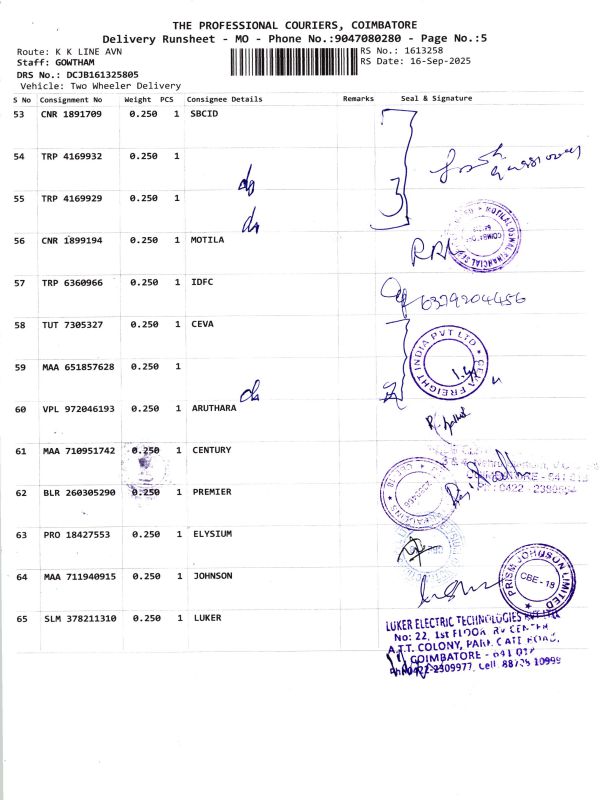 THE PROFESSIONAL COURIERS, COIMBATORE
Delivery Runsheet - MO - Phone No.:9047080280 - Page No.:5
Route: K K LINE AVN
RS No.: 1613258
Staff: GOWTHAM
RS Date: 16-Sep-2025
DRS No.: DCJB161325805
Vehicle: Two Wheeler Delivery
S No Consignment No Weight PCS Consignee Details Remarks Seal & Signature
53 CNR 1891709 0.250 1 SBCID
54 TRP 4169932 0.250 1
do
55 TRP 4169929 0.250 1
3
do
56 CNR 1899194 0.250 1 MOTILA
57 TRP 6360966 0.250 1 IDFC
6379204456
58 TUT 7305327 0.250 1 CEVA
CEVA FREIGHT INDIA PVT LTD
59 MAA 651857628 0.250 1
do
60 VPL 972046193 0.250 1 ARUTHARA
61 MAA 710951742 0.250 1 CENTURY
62 BLR 260305290 0.250 1 PREMIER
63 PRO 18427553 0.250 1 ELYSIUM
64 MAA 711940915 0.250 1 JOHNSON
PRISM JOHNSON LIMITED
CBE - 18
65 SLM 378211310 0.250 1 LUKER
LUKER ELECTRIC TECHNOLOGIES PVT LTD
No: 22, 1st FLOOR, RV CENTER
A.T.T. COLONY, PARK GATE ROAD,
COIMBATORE - 641 018
Ph: 0422-2309977, Cell: 88705 10999